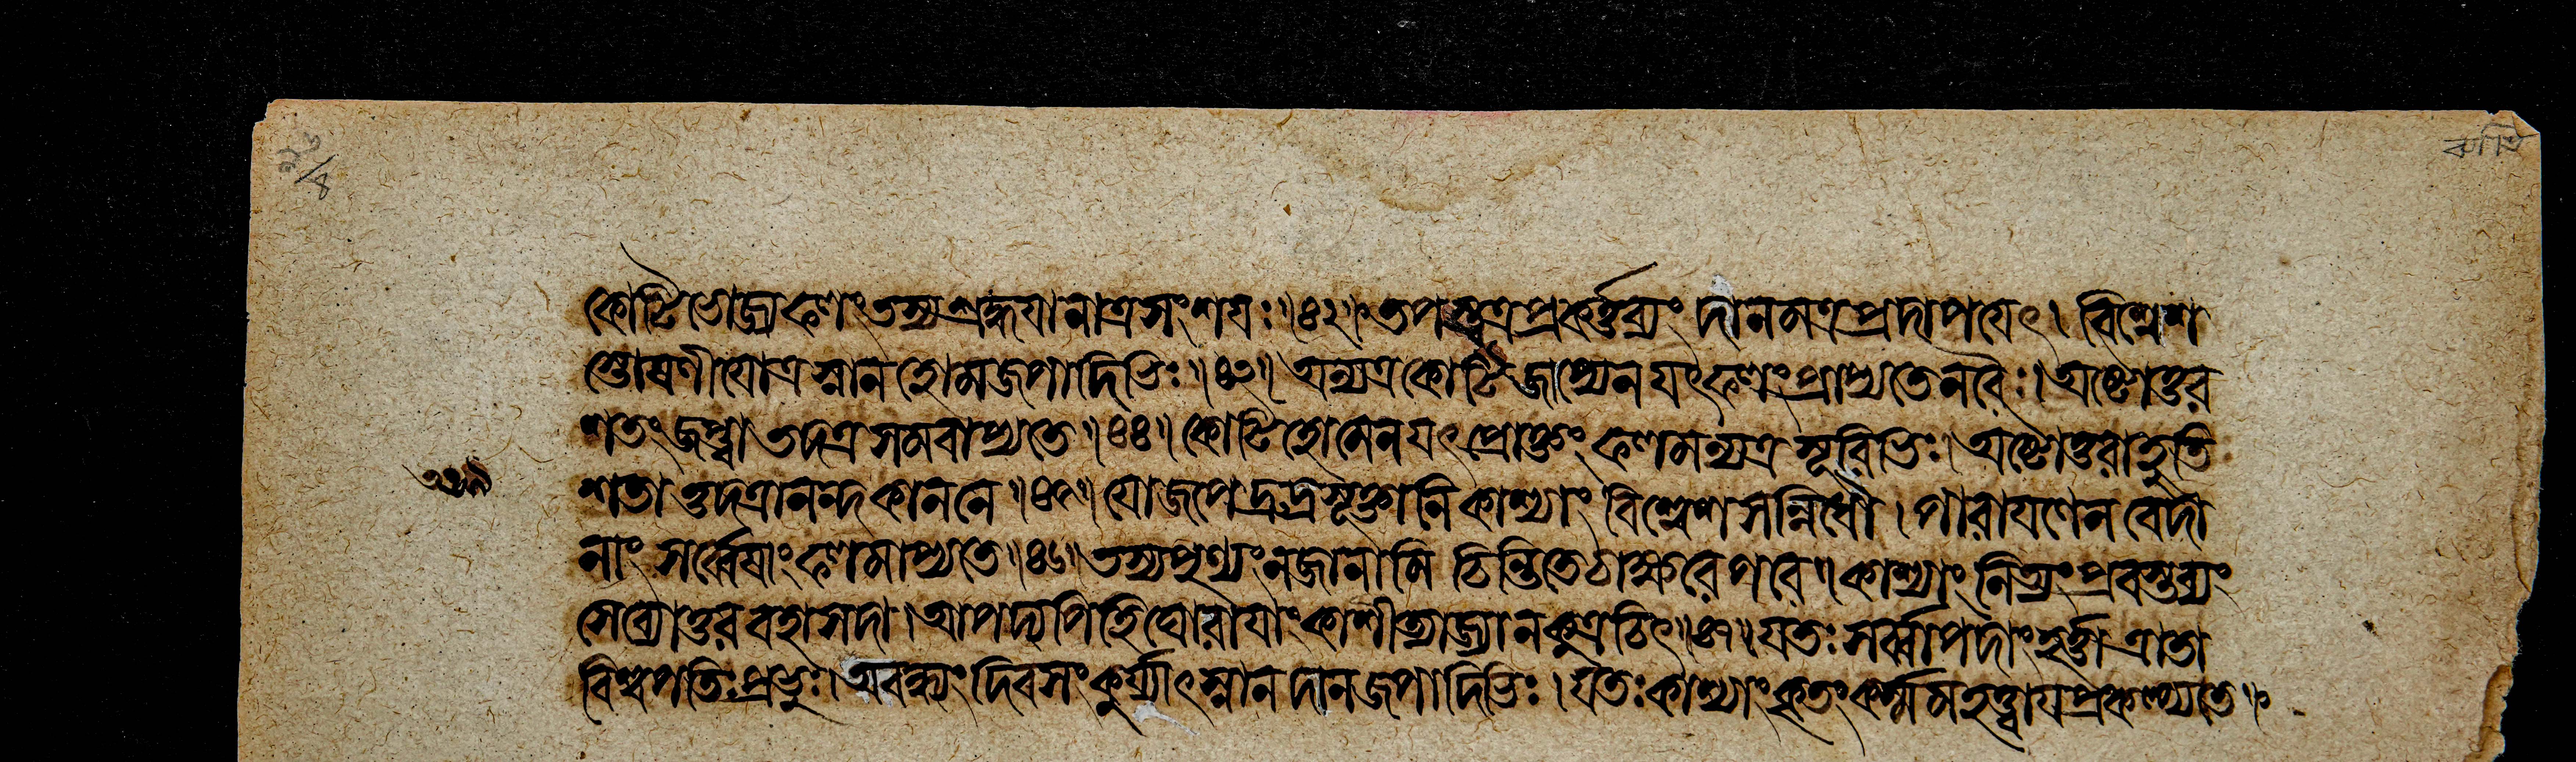 কোটিভোজ্যফলং তস্য শ্রদ্ধয়া নাত্র সংশয়ঃ ॥ ৪২ ॥ তপস্ত্বত্র প্রকর্ত্তব্যং দানমত্র প্রদাপয়েৎ । বিশ্বেশ
স্তোষণীয়োত্র স্নানহোমজপাদিভিঃ ॥ ৪৩ ॥ অন্যত্র কোটিজপ্যেন যৎ ফলং প্রাপ্যতে নরৈঃ । অষ্টোত্তর
শতং জপ্ত্বা তদত্র সমবাপ্যতে ॥ ৪৪ ॥ কোটিহোমেন যৎ প্রোক্তং ফলমন্যত্র সূরিভিঃ । অষ্টোত্তরাহুতি
শতাত্তদত্রানন্দকাননে ॥ ৪৫ ॥ যো জপেদ্রুদ্রসূক্তানি কাশ্যাং বিশ্বেশসন্নিধৌ । পারায়ণেন বেদা
নাং সর্ব্বেষাং ফলমাপ্যতে ॥ ৪৬ ॥ তস্য পুণ্যং ন জানামি চিন্তিতে চাক্ষরে পরে ॥ কাশ্যাং নিত্যং প্রবস্তব্যং
সেব্যোত্তরবহা সদা । আপদ্যপি হি ঘোরায়াং কাশী ত্যাজ্যা ন কুত্রচিৎ ॥ ৪৭ ॥ যতঃ সর্ব্বাপদাং হর্ত্তা ত্রাতা
বিশ্বপতিঃ প্রভুঃ । অবন্ধ্যং দিবসং কুর্য্যাৎ স্নানদানজপাদিভিঃ । যতঃ কাশ্যাং কৃতং কর্ম্ম মহত্ত্বায় প্রকল্প্যতে ॥
কাশি